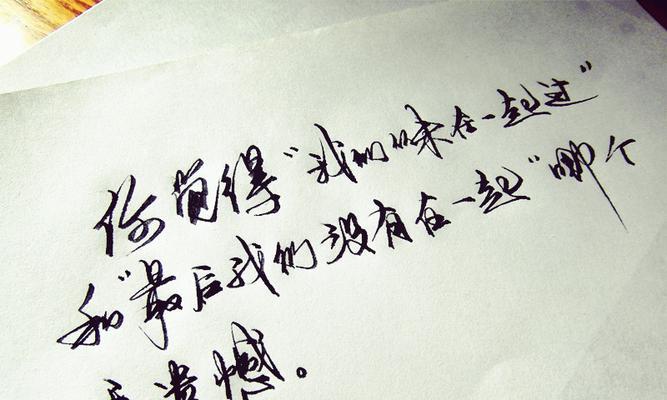 你觉得“我们从未在一起过”
和“最后我们没有在一起”哪个
更遗憾。